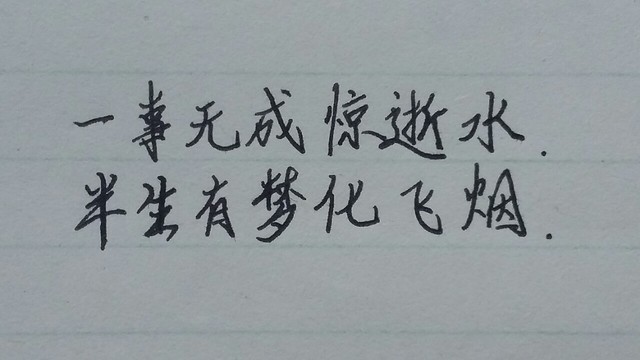 一事无成惊逝水.
半生有梦化飞烟.